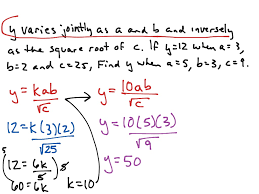 y varies jointly as a and b and inversely
as the square root of c. If y=12 when a=3,
b=2 and c=25, Find y when a=5, b=3, c=9.
y = kab/√c
y = 10ab/√c
12 = k(3)(2)/√25
y = 10(5)(3)/√9
5(12 = 6k/5)5
y = 50
60 = 6k k=10